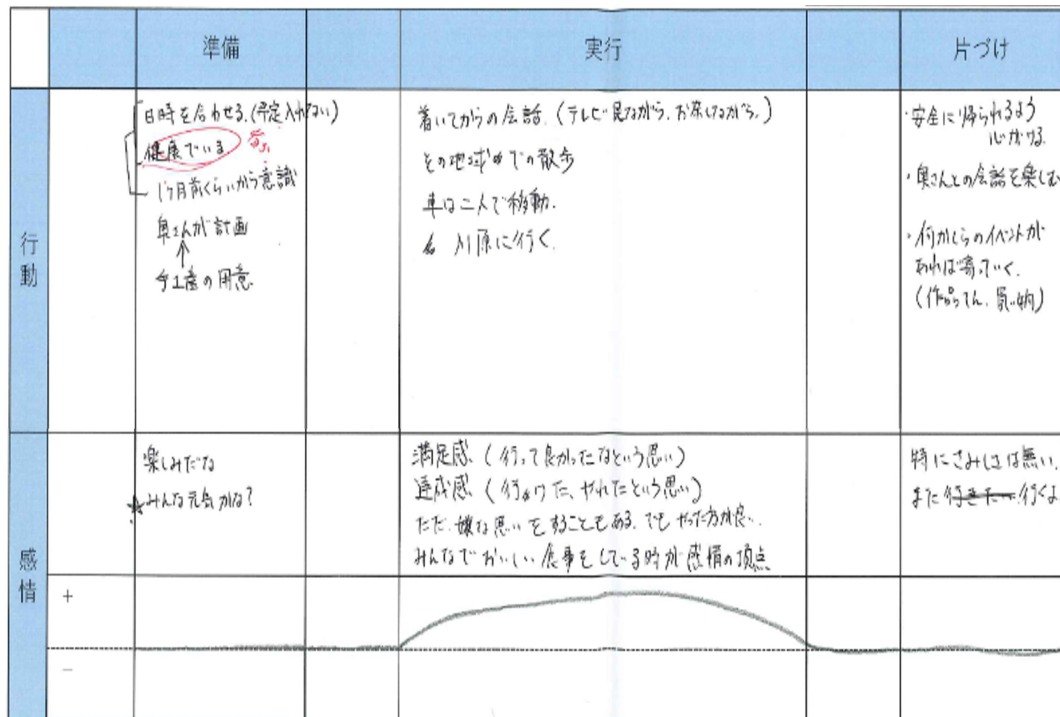 準備
実行
片づけ
行動
日時を合わせる.(予定入れない)
健康でいる
1ヶ月前くらいから意識
奥さんが計画
手土産の用意
着いてからの会話.(テレビ見ながら.お茶しながら.)
その地域での散歩
車は二人で移動.
川原に行く.
・安全に帰られるよう
心がける.
・奥さんとの会話を楽しむ
・何かしらのイベントが
あれば寄っていく.
感情
楽しみだな
みんな元気かな?
満足感 (行って良かったなという思い)
達成感 (行けた、やれたという思い)
ただ.嫌な思いをすることもある.でもやった方が良い.
みんなでおいしい食事をしている時が感情の頂点
特にさみしさは無い.
また 行くよ
+
−